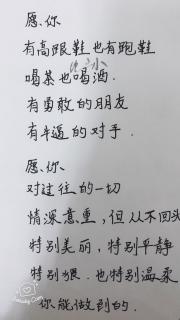 愿、你
有高跟鞋也有跑鞋
喝茶也喝酒.
有勇敢的朋友
有牛逼的对手.
愿、你、
对过往的一切
情深意重,但从不回头
特别美丽,特别平静
特别狠.也特别温柔
你能做到的.